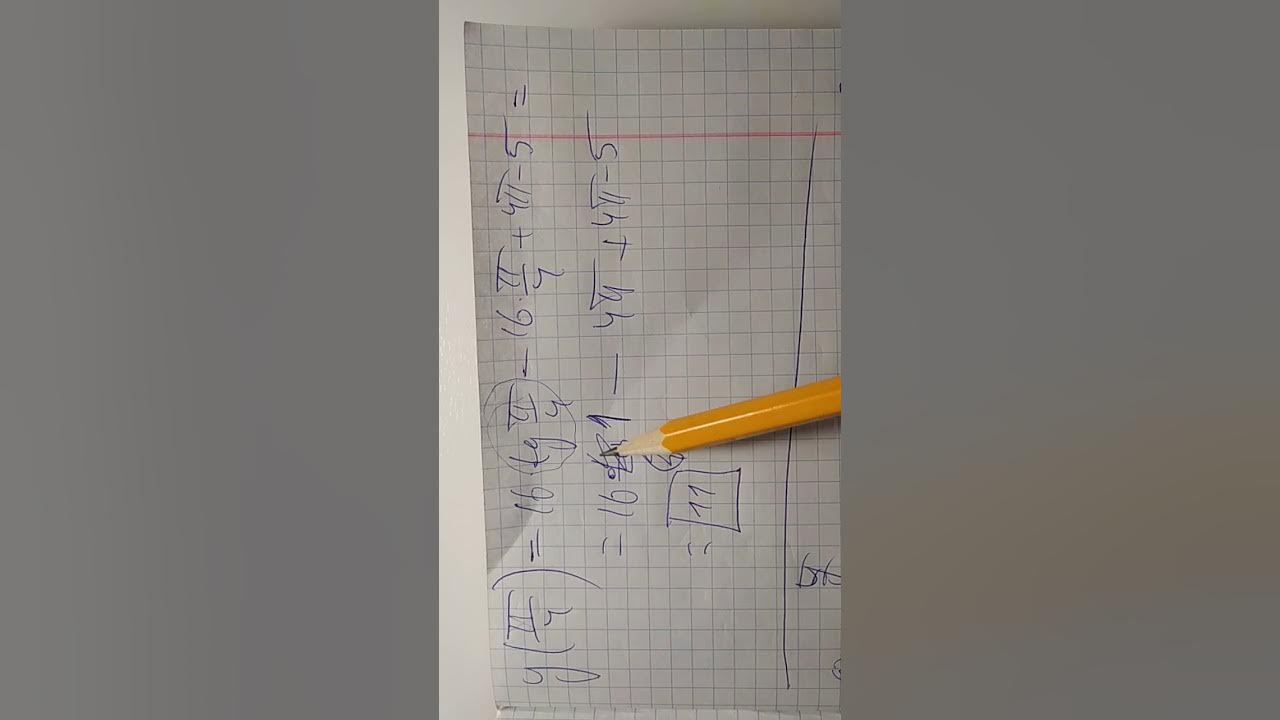 y(π/4) = 16·tg π/4 - 16·π/4 + 4π - 5 =
= 16·1 - 4π + 4π - 5
= 11